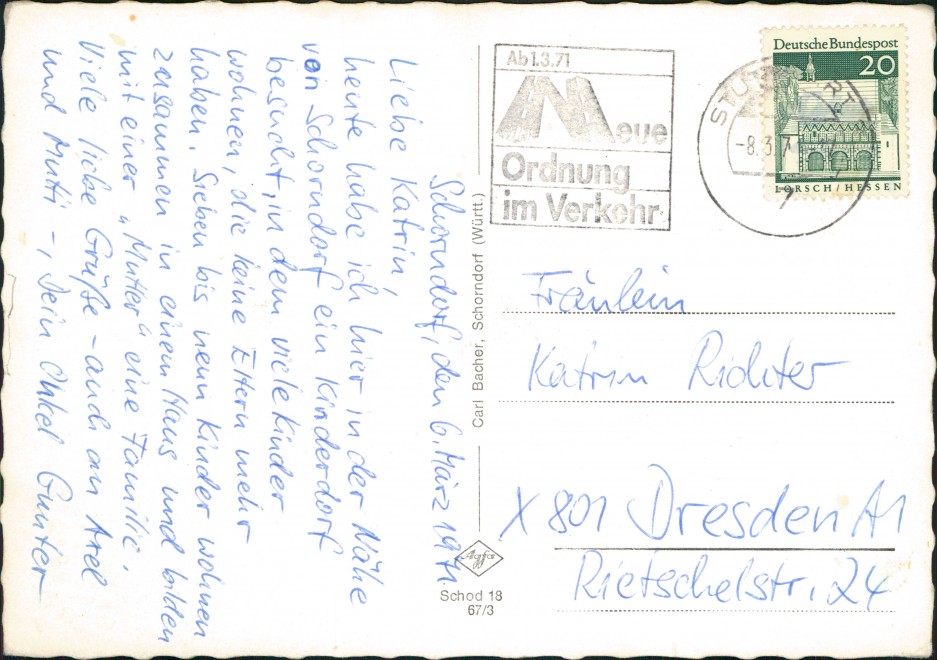 Schorndorf, den 6. März 1971.
Liebe Katrin,
heute habe ich hier in der Nähe
von Schorndorf ein Kinderdorf
besucht, in dem viele Kinder
wohnen, die keine Eltern mehr
haben. Sieben bis neun Kinder wohnen
zusammen in einem Haus und bilden
mit einer „Mutter“ eine Familie.
Viele liebe Grüße – auch an Axel
und Mutti –, Dein Onkel Gunter
Carl Bacher, Schorndorf (Württ.)
Agfa
Schod 18
67/3
Ab 1.3.71
Neue
Ordnung
im Verkehr
STUTTGART
-8.3.7
Deutsche Bundespost
20
LORSCH/HESSEN
Fräulein
Katrin Richter
X 801 Dresden A1
Rietschelstr. 24